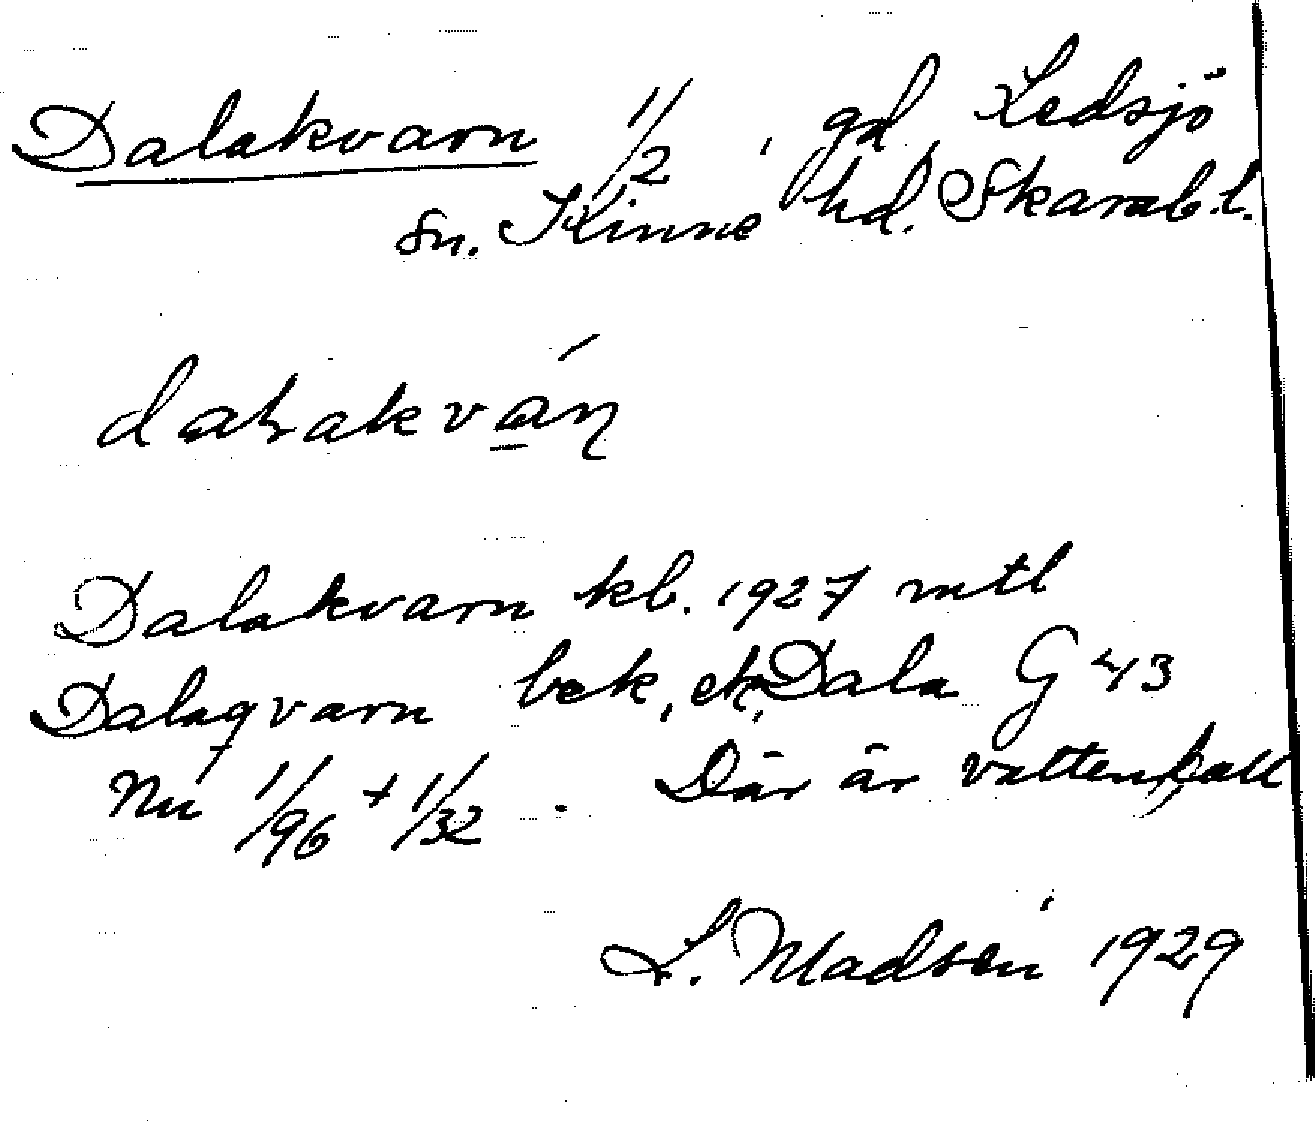 Dalakvarn 1/2, gd Ledsjö
sn. Kinne hd. Skarab.l.
daɽakván
Dalakvarn kb. 1927 mtl
Dalaqvarn bek, ek, Dala G 43
Nu 1/96 + 1/32. Där är vattenfall
L. Madsén 1929